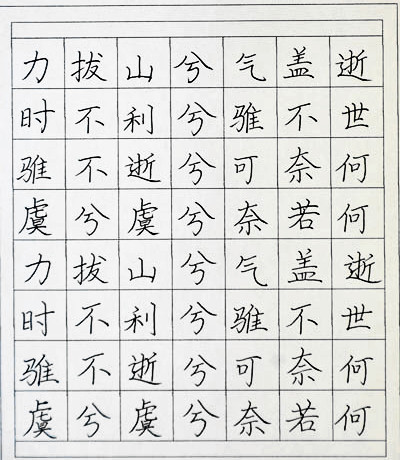 力拔山兮气盖逝
时不利兮骓不世
骓不逝兮可奈何
虞兮虞兮奈若何
力拔山兮气盖逝
时不利兮骓不世
骓不逝兮可奈何
虞兮虞兮奈若何